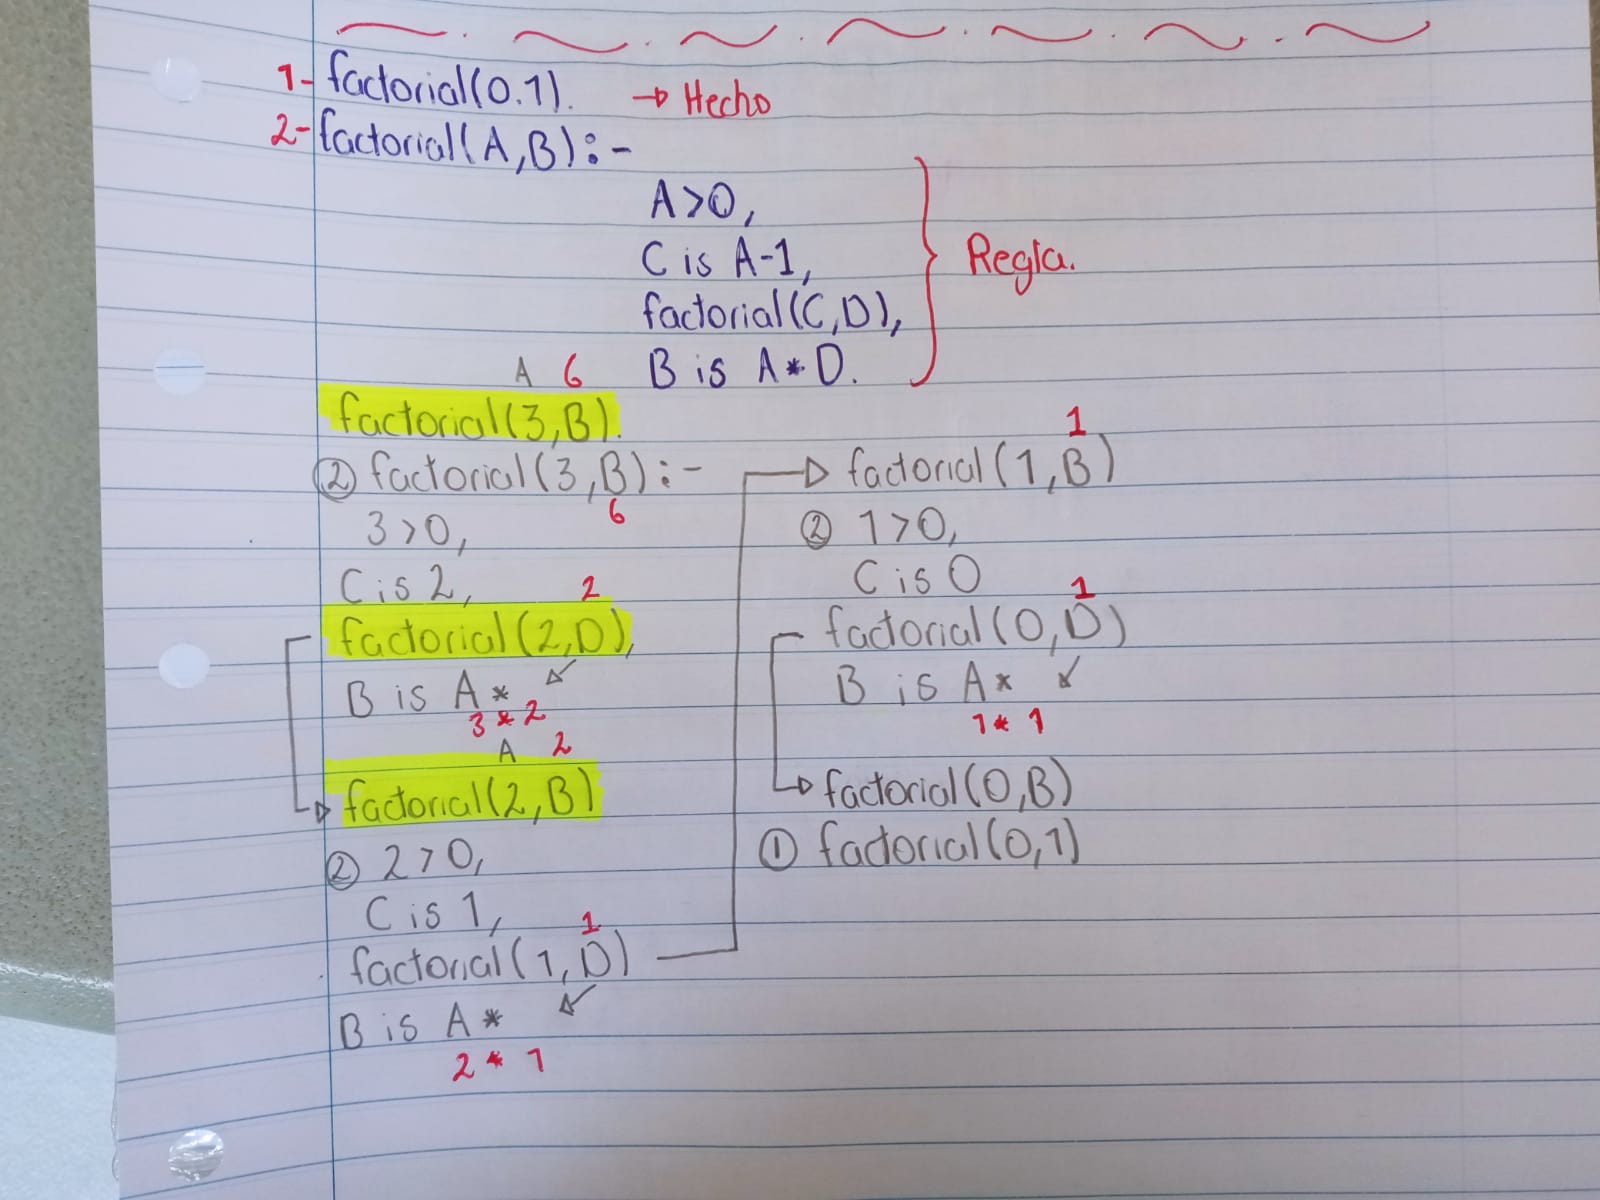 1- factorial(0.1). → Hecho
2- factorial(A,B):-
A>0,
C is A-1,
factorial(C,D),
B is A*D.
Regla.
A 6
factorial(3,B).
② factorial(3,B):-
6
3>0,
C is 2,
2
factorial(2,D),
B is A*
3*2
A 2
factorial(2,B)
② 2>0,
C is 1,
1
factorial(1,D)
B is A*
2*1
1
factorial(1,B)
② 1>0,
C is 0
1
factorial(0,D)
B is A*
1*1
factorial(0,B)
① factorial(0,1)